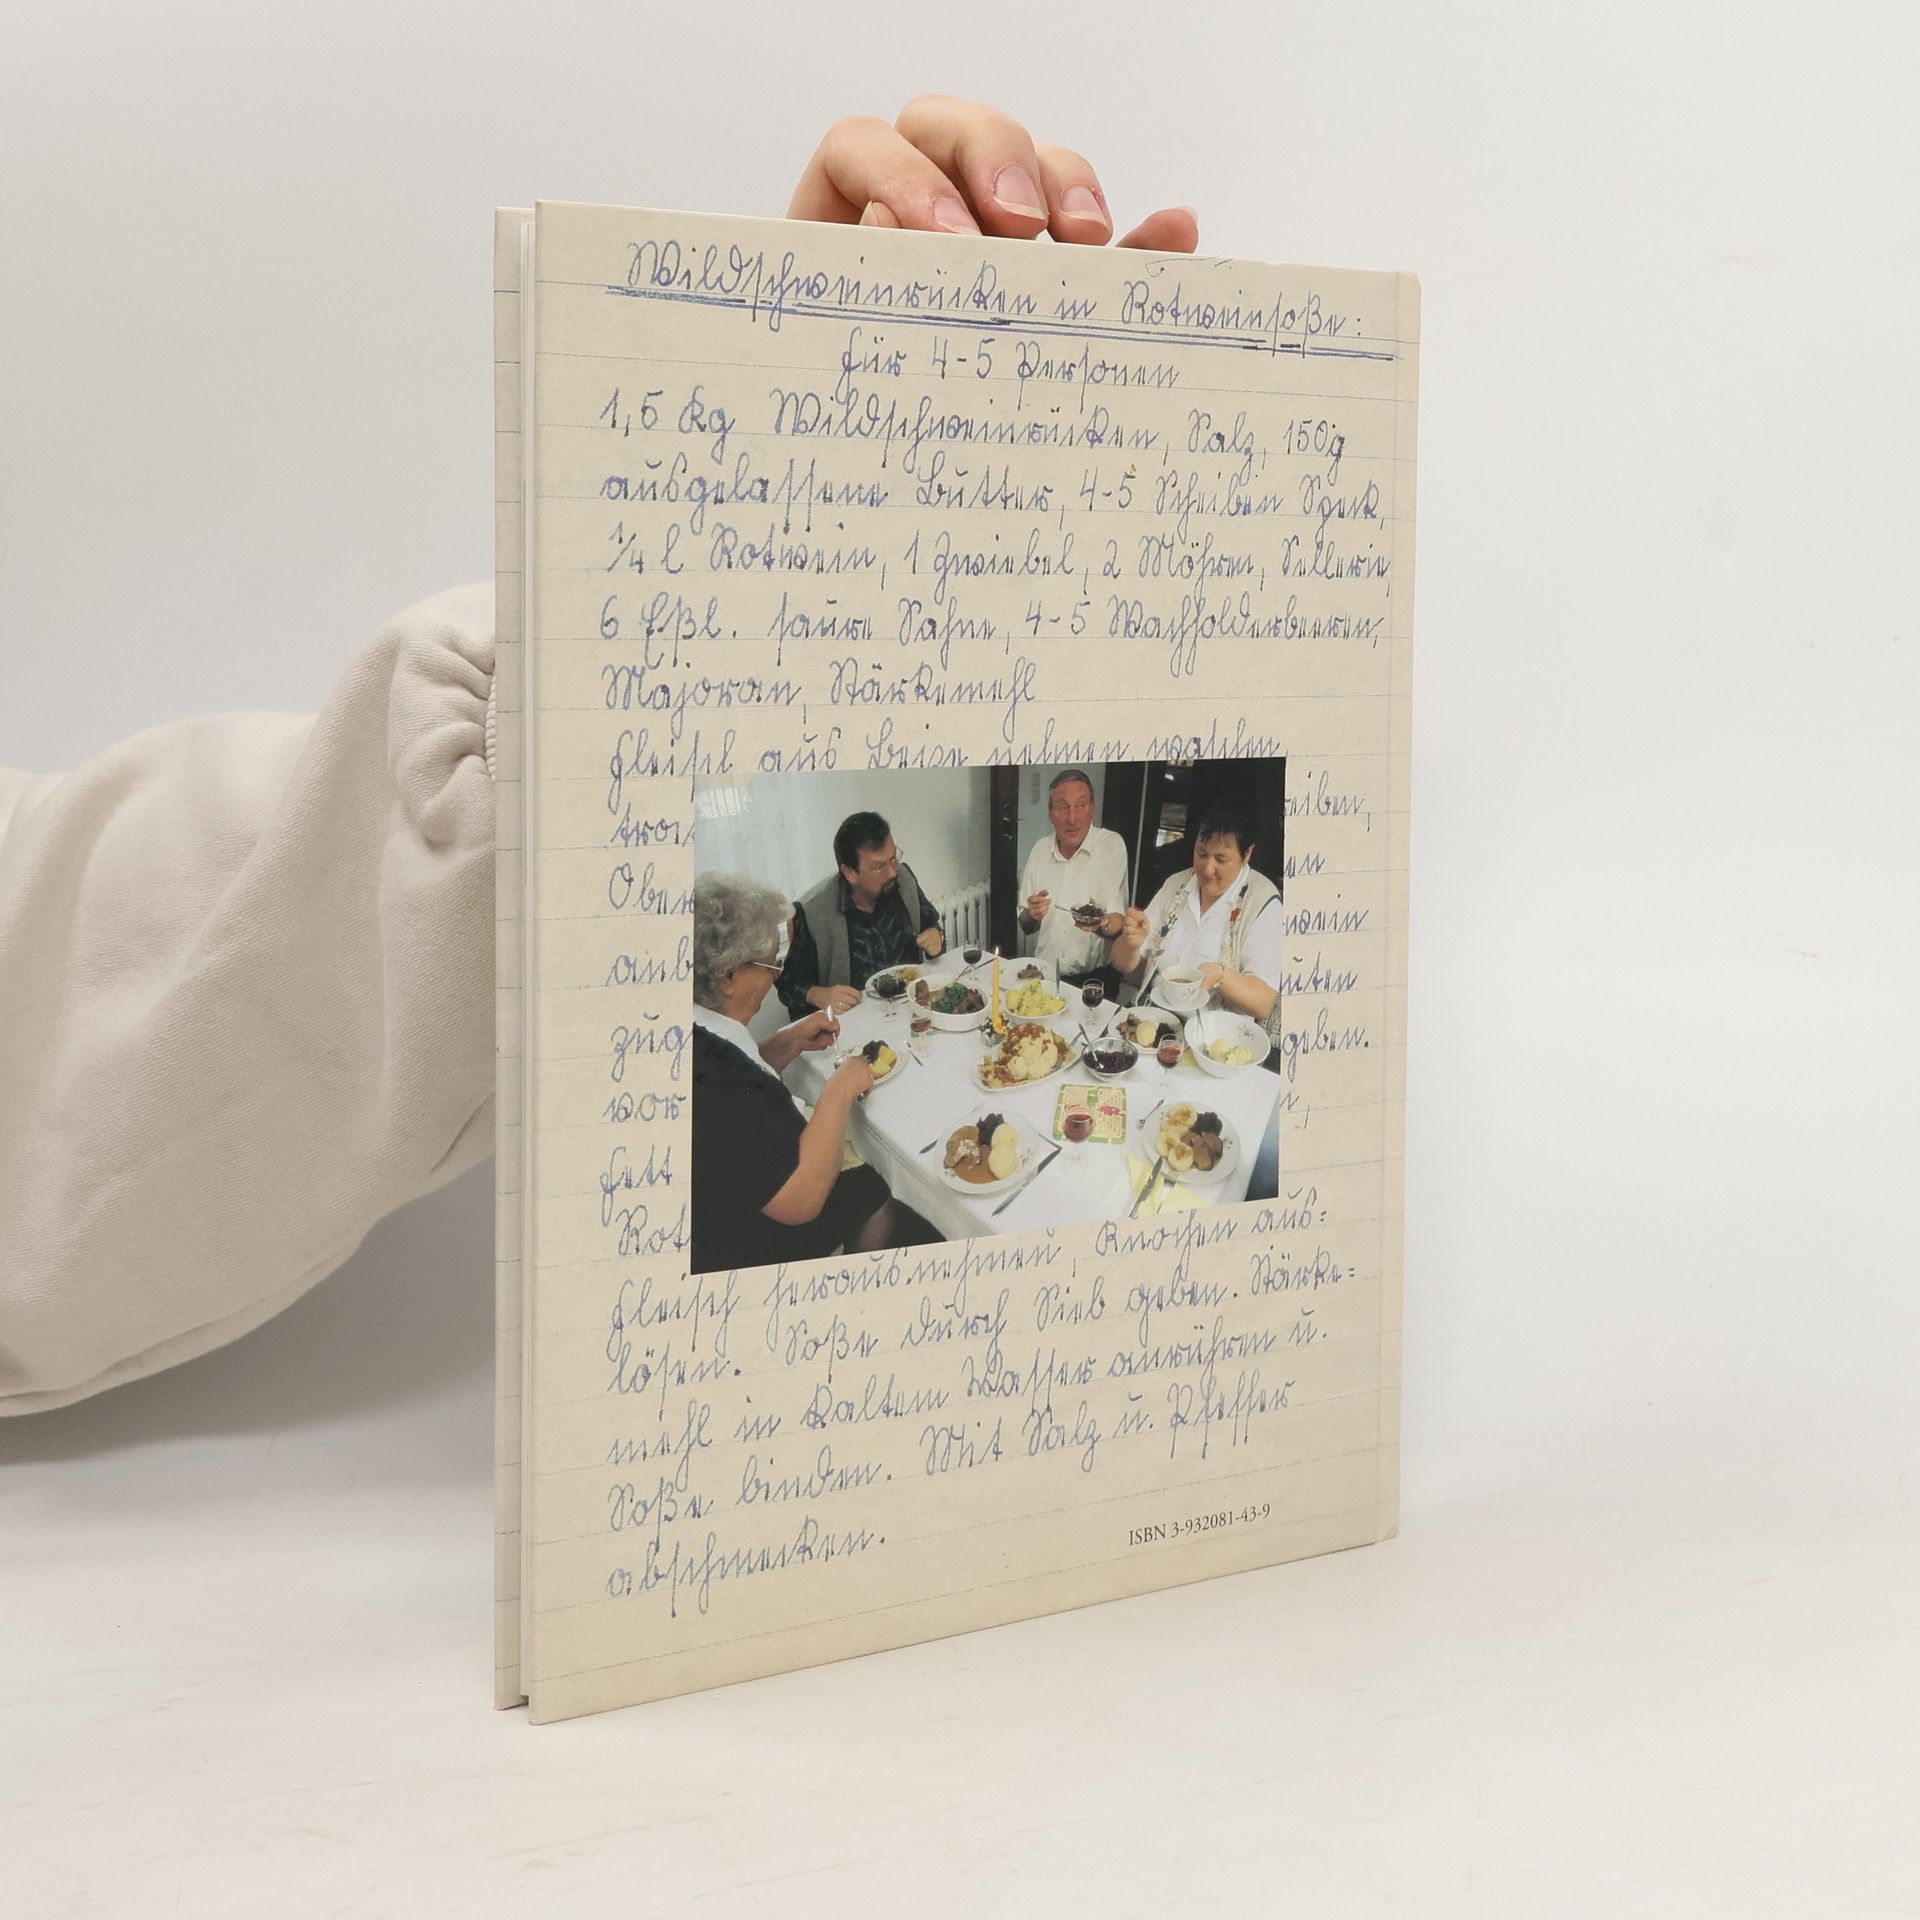 Wildschweinrücken in Rotweinsoße:
für 4-5 Personen
1,5 Kg Wildschweinrücken, Salz, 150g
ausgelassene Butter, 4-5 Scheiben Speck,
1/4 l Rotwein, 1 Zwiebel, 2 Möhren, Sellerie,
6 Eßl. saure Sahne, 4-5 Wachholderbeeren,
Majoran, Stärkemehl
Fleisch aus Beize nehmen, waschen,
eiben,
Ober en
anb wein
zug uten
vor geben.
Fett
Rot
Fleisch herausnehmen, Knochen aus=
lösen. Soße durch Sieb geben. Stärke=
mehl in kaltem Wasser anrühren u.
Soße binden. Mit Salz u. Pfeffer
abschmecken.
ISBN 3-932081-43-9